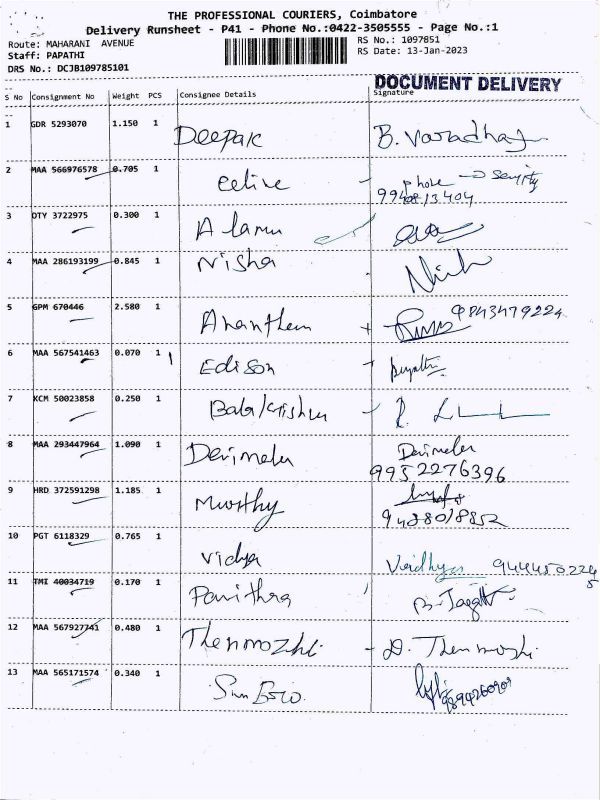 THE PROFESSIONAL COURIERS, Coimbatore
Delivery Runsheet - P41 - Phone No.:0422-3505555 - Page No.:1
Route: MAHARANI AVENUE
RS No.: 1097851
Staff: PAPATHI
RS Date: 13-Jan-2023
DRS No.: DCJB109785101
DOCUMENT DELIVERY
S No Consignment No Weight PCS Consignee Details Signature
1 GDR 5293070 1.150 1 Deepak B. Varadhaj
2 MAA 566976578 0.705 1 celive phone → Security
9940813404
3 DTY 3722975 0.300 1 Alamu
4 MAA 286193199 0.845 1 Nisha Nish
5 GPM 670446 2.580 1 Ananthem 9843479224
6 MAA 567541463 0.070 1 Edison
7 KCM 50023858 0.250 1 Balakrishnn
8 MAA 293447964 1.090 1 Devimala Devimala
9952276396
9 HRD 372591298 1.185 1 Murthy
9488018852
10 PGT 6118329 0.765 1 Vidya Vaidhya
11 TMI 40034719 0.170 1 Pavithra
12 MAA 567927741 0.480 1 Thenmozhi D. Thenmozhi
13 MAA 565171574 0.340 1